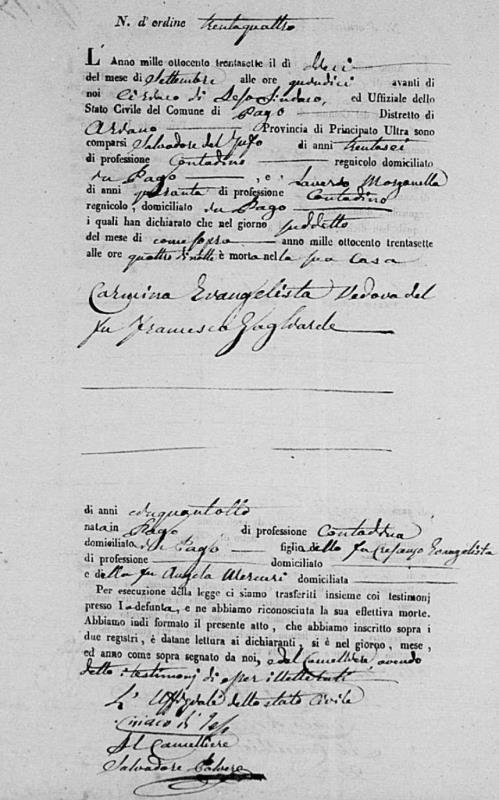 N. d'ordine trentaquattro
L'Anno mille ottocento trentasette il dì dieci
del mese di Settembre alle ore quindici avanti di
noi Ciriaco di Ieso Sindaco, ed Uffiziale dello
Stato Civile del Comune di Pago Distretto di
Ariano Provincia di Principato Ultra sono
comparsi Salvadore del di anni trentasei
di professione Contadino regnicolo domiciliato
in Pago , e Saverio Morganella
di anni quaranta di professione Contadino
regnicolo, domiciliato in Pago
i quali han dichiarato che nel giorno suddetto
del mese di come sopra anno mille ottocento trentasette
alle ore quattro di notte è morta nella sua casa
Carmina Evangelista Vedova del
fu Francesco Gagliarde
di anni cinquantotto
nata in Pago di professione Contadina
domiciliato in Pago figlia dello fu Evangelista
di professione domiciliato
e della fu Angela Mercuri domiciliata
Per esecuzione della legge ci siamo trasferiti insieme coi testimonj
presso la defunta, e ne abbiamo riconosciuta la sua effettiva morte.
Abbiamo indi formato il presente atto, che abbiamo inscritto sopra i
due registri, è datane lettura ai dichiaranti, si è nel giorno, mese,
ed anno come sopra segnato da noi, e dal Cancelliere avendo
detto i testimonj di esser illetterati
L'Uffiziale dello stato Civile
Ciriaco di Ieso
Il Cancelliere
Salvadore